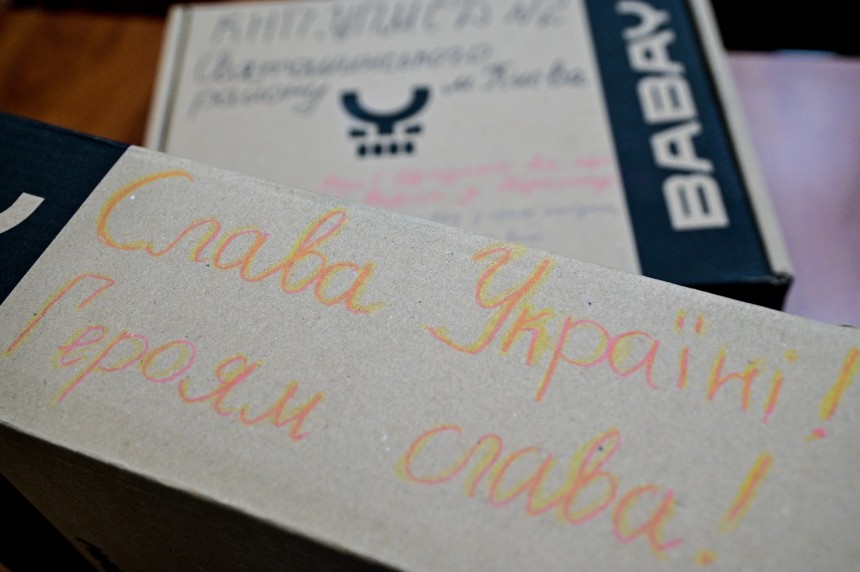 КНП "ЦПМСД N2
Святошинського
району м. Києва
BABAY
Слава Україні!
Героям слава!